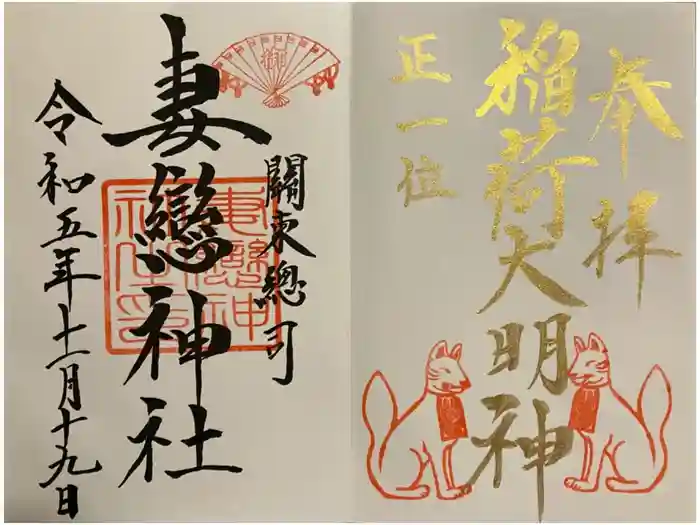 奉拝
稲荷大明神
正一位
關東總司
妻戀神社
令和五年十一月十九日